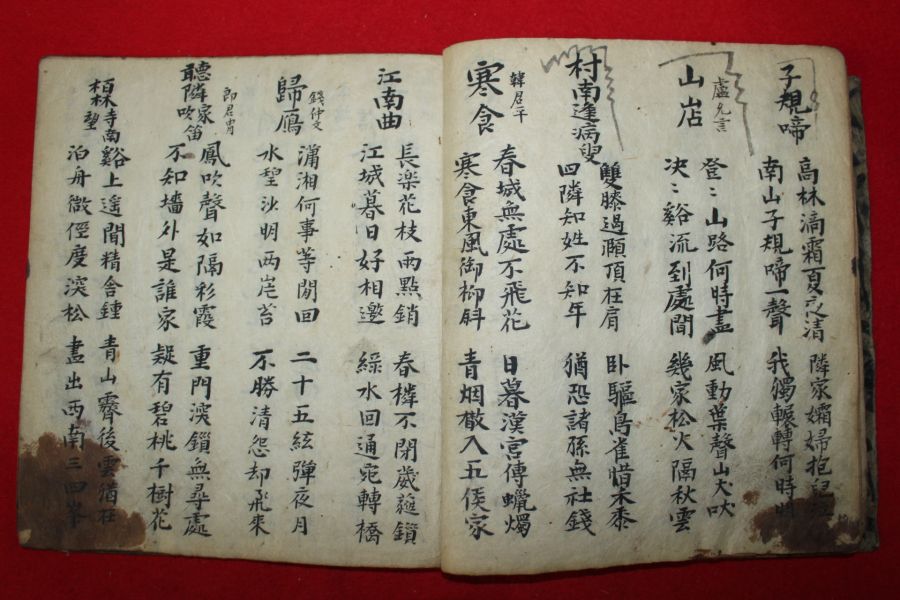 子規啼
高林滴霜夏夜清
南山子規啼一聲
隣家孀婦抱兒泣
我獨輾轉何時明
山店
盧允言
登〻山路何時盡
决〻谿流到處聞
風動葉聲山犬吠
幾家松火隔秋雲
村南逢病叟
雙膝過頤頂在肩
四隣知姓不知年
臥驅鳥雀惜禾黍
猶恐諸孫無社錢
寒食
韓君平
春城無處不飛花
寒食東風御柳斜
日暮漢宮傳蠟燭
青烟散入五侯家
江南曲
長楽花枝雨點銷
江城暮日好相邀
春樓不閉葳蕤鎖
綠水回通宛轉橋
歸鴈
錢仲文
瀟湘何事等閒回
水碧沙明两岸苔
二十五絃彈夜月
不勝清怨却飛來
聽隣家吹笛
郎君胄
鳳吹聲如隔彩霞
不知墻外是誰家
重門深鎖無尋處
疑有碧桃千樹花
栢林寺南望
谿上遙聞精舍鍾
泊舟微徑度深松
青山霽後雲猶在
畫出西南三四峯